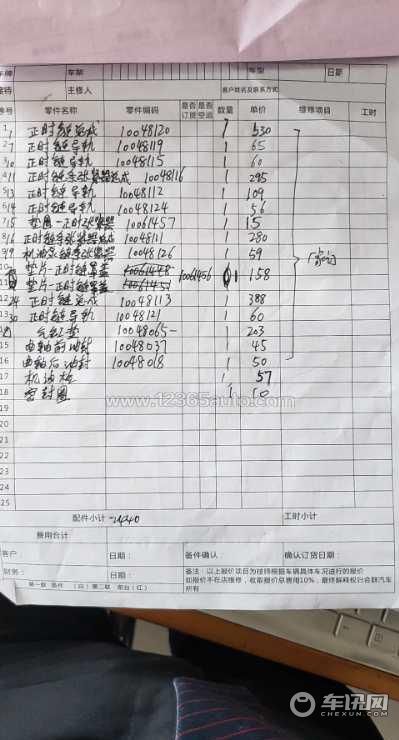 车牌 车架 车型 日期
接待 主修人 客户姓名及联系方式
序号 零件名称 零件编码 是否订货 是否空运 数量 单价 维修项目 工时
1 正时链总成 10048120 1 530
2 正时链导轨 10048119 1 65
3 正时链导轨 10048115 1 60
4 正时链条张紧器总成 10048116 1 295
5 正时链导轨 10048112 1 109
6 正时链导轨 10048124 1 56
7 垫圈-正时张紧器 10061457 1 15
8 正时链条张紧器总成 10048111 1 280
9 机油泵链条张紧器 10048126 1 59
10 垫片-正时链罩盖 10061456 1 158
11 垫片-正时链罩盖
12 正时链总成 10048113 1 388
13 正时链导轨 10048121 1 60
14 气缸垫 10048065 1 203
15 曲轴前油封 10048037 1 45
16 曲轴后油封 10048018 1 50
17 机油格 1 57
18 密封圈 1 10
19
20
21
22
23
24
25
www.12365auto.com
配件小计 工时小计
费用合计
客户: 日期: 备件确认: 确认订货日期:
财务: 日期: 备注:以上报价项目为接待根据车辆具体车况进行的报价
如报价不在店维修,收取报价总费用10%,最终解释权归合群汽车所有
第一联 备件 (白)第二联 前台(红)
车讯网
CHEXUN.COM